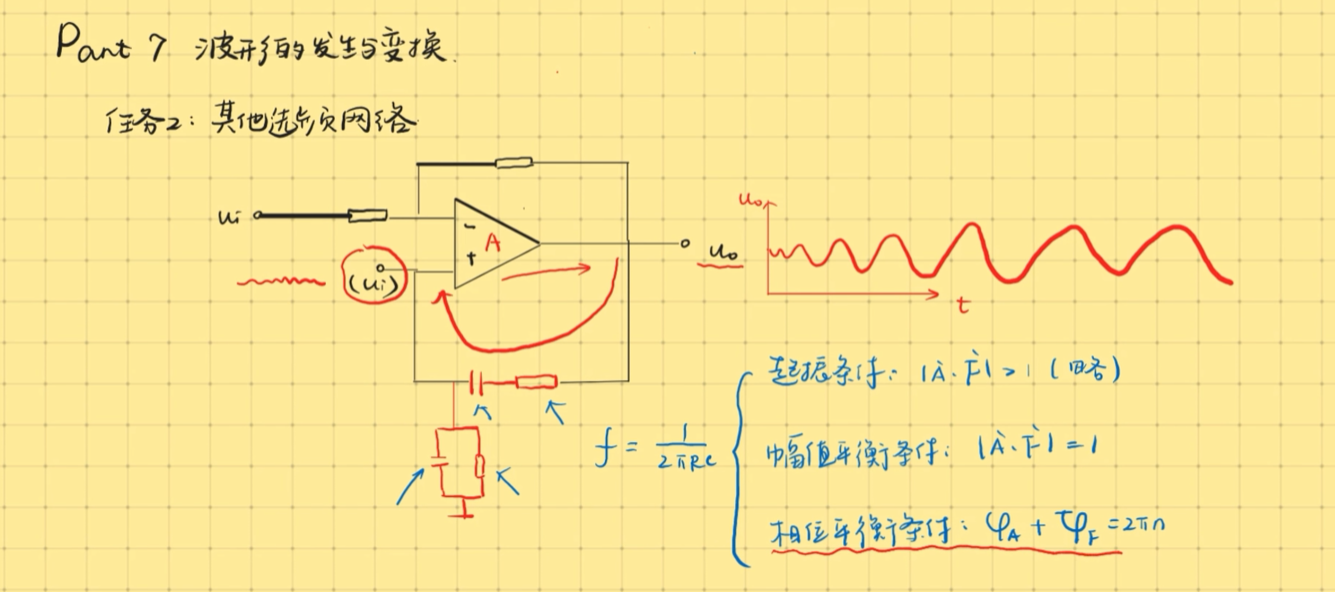 Part 7 波形的发生与变换.
任务2: 其他选频网络
ui
- A
+
(ui)
uo
uo
t
f = 1/2πRC
起振条件: |Ȧ·Ḟ| > 1 (略)
幅值平衡条件: |Ȧ·Ḟ| = 1
相位平衡条件: φA + φF = 2πn